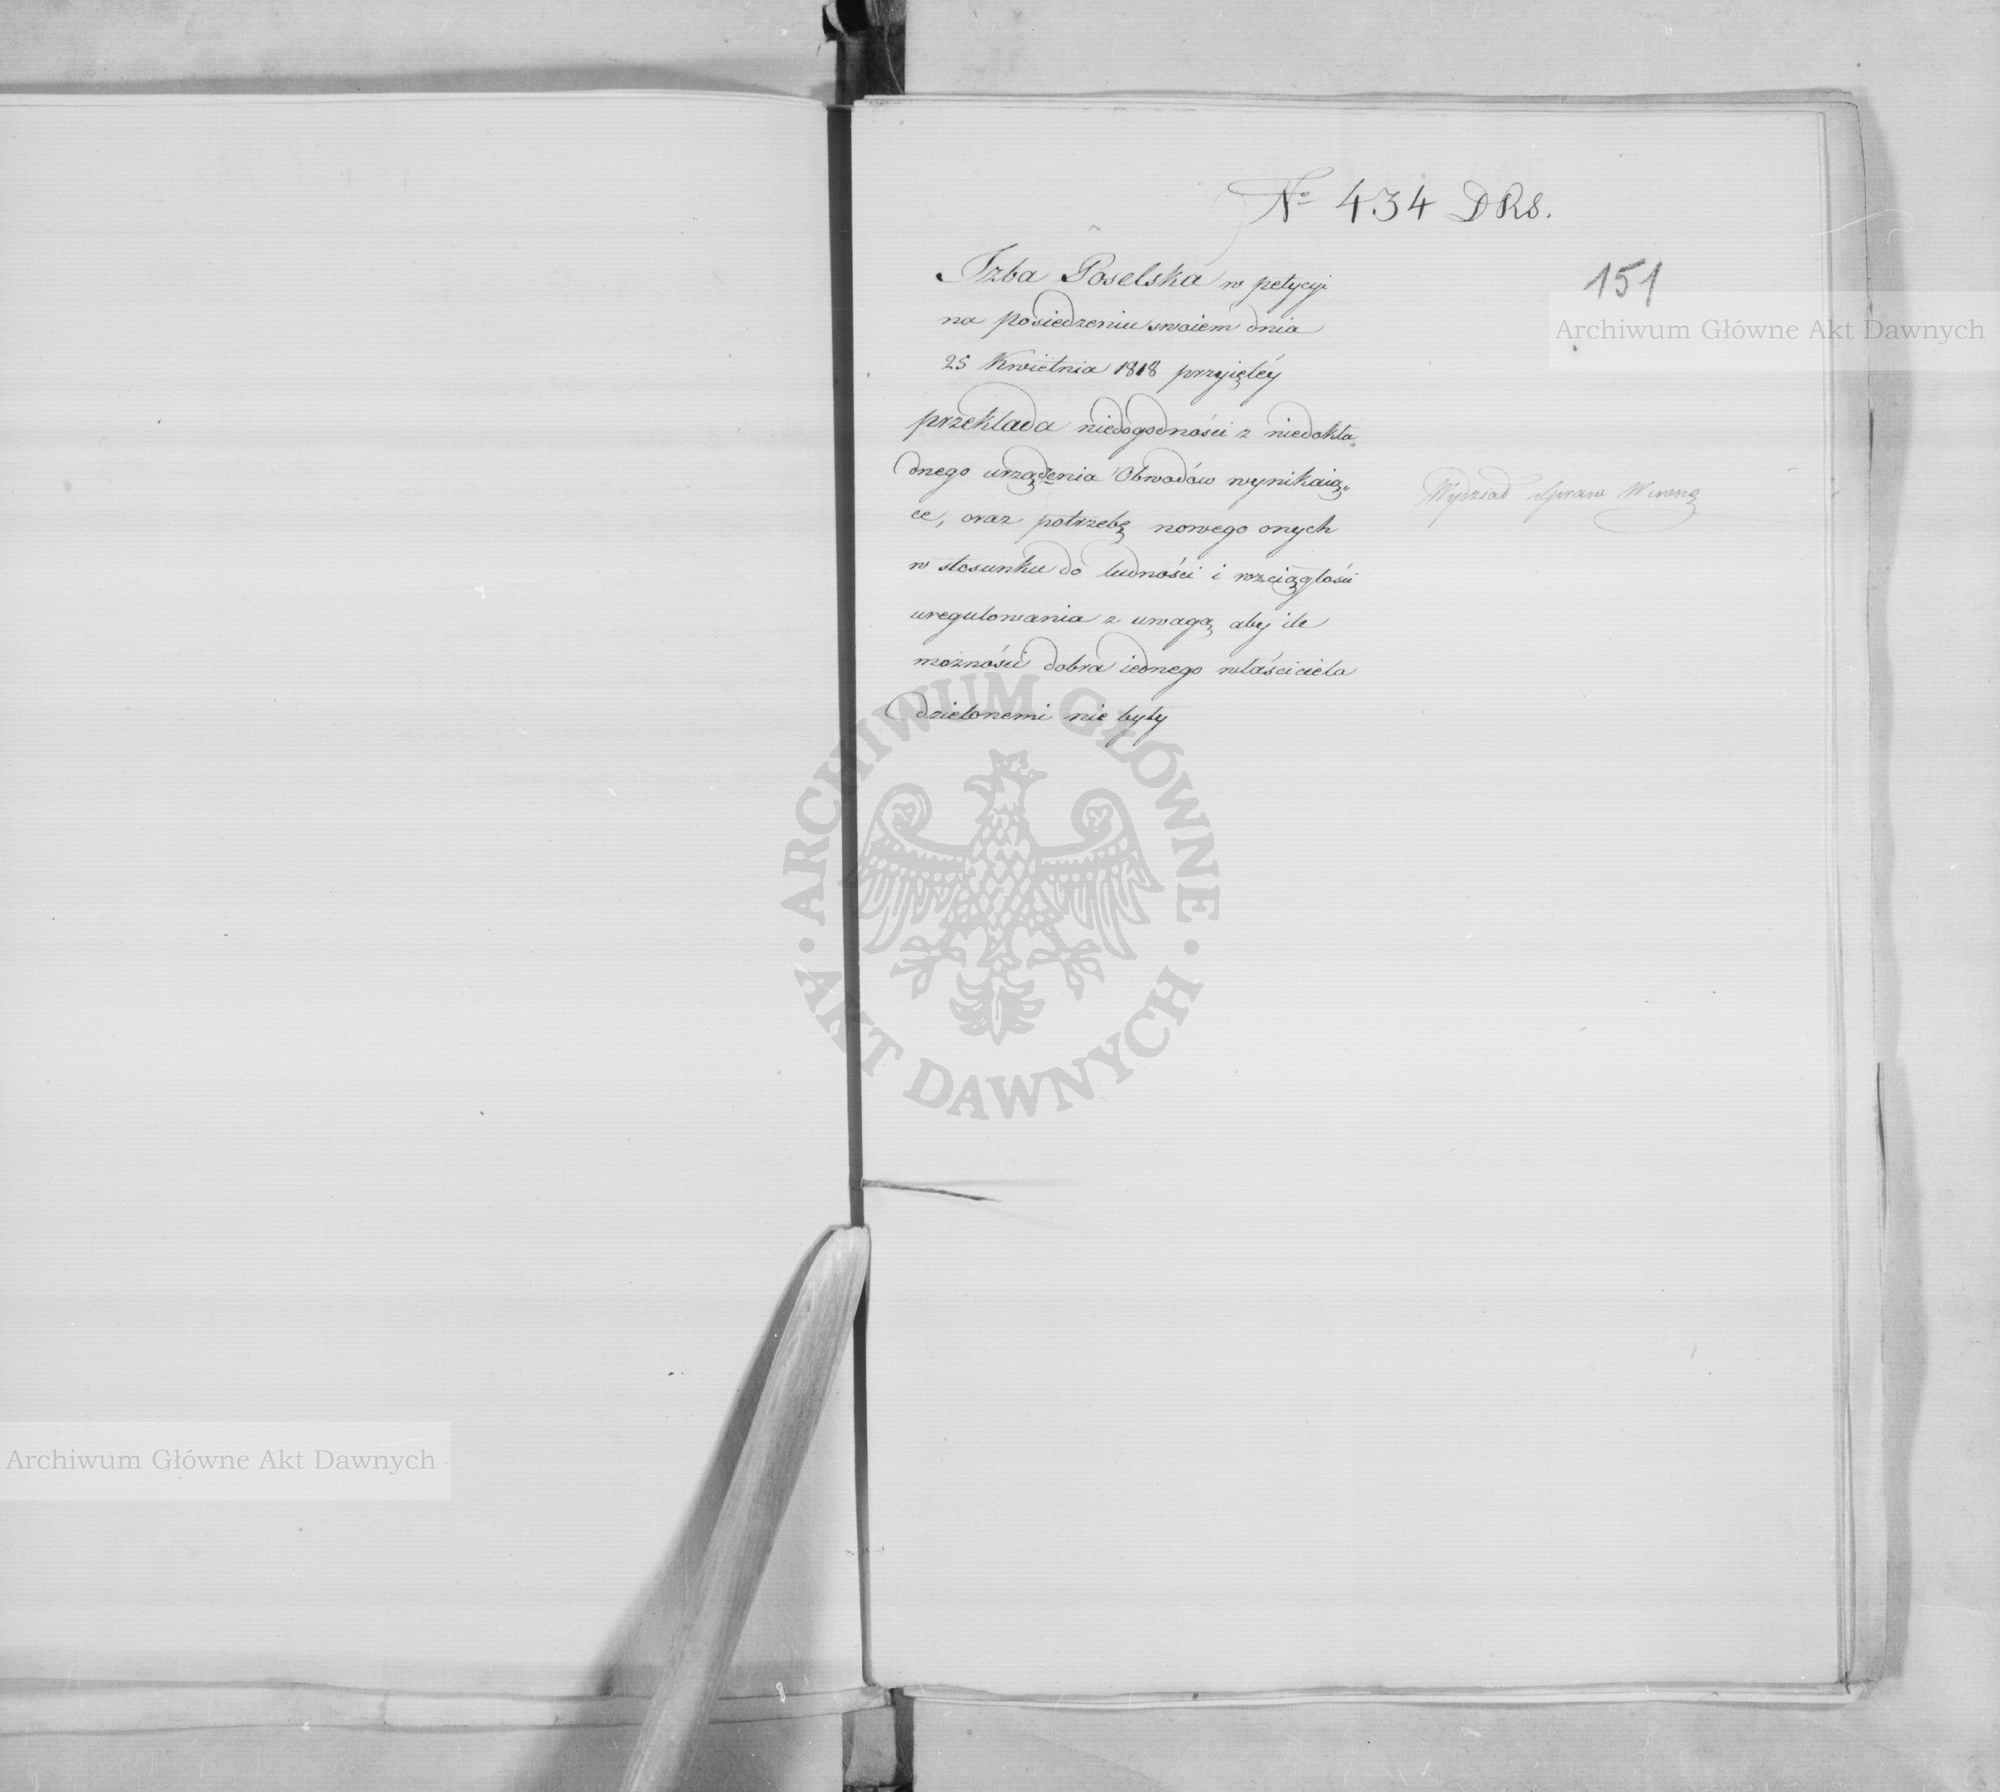 № 434 DRS.
151
Izba Poselska w petycyi
na posiedzeniu swoiem dnia
25 Kwietnia 1818 przyiętéy
przekłada niedogodności z niedokła„
dnego urządzenia Obwodów wynikaią„
ce, oraz potrzebę nowego onych
w stosunku do ludności i rozciągłości
uregulowania z uwagą aby ile
możności dobra iednego właściciela
dzielonemi nie były
Wydział Spraw Wewnę
Archiwum Główne Akt Dawnych
ARCHIWUM GŁÓWNE · AKT DAWNYCH ·
Archiwum Główne Akt Dawnych